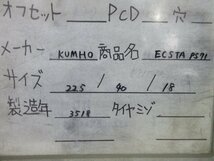 オフセット PCD 穴
メーカー KUMHO 商品名 ECSTA PS71
サイズ 225 / 40 / 18
製造年 3518 タイヤミゾ